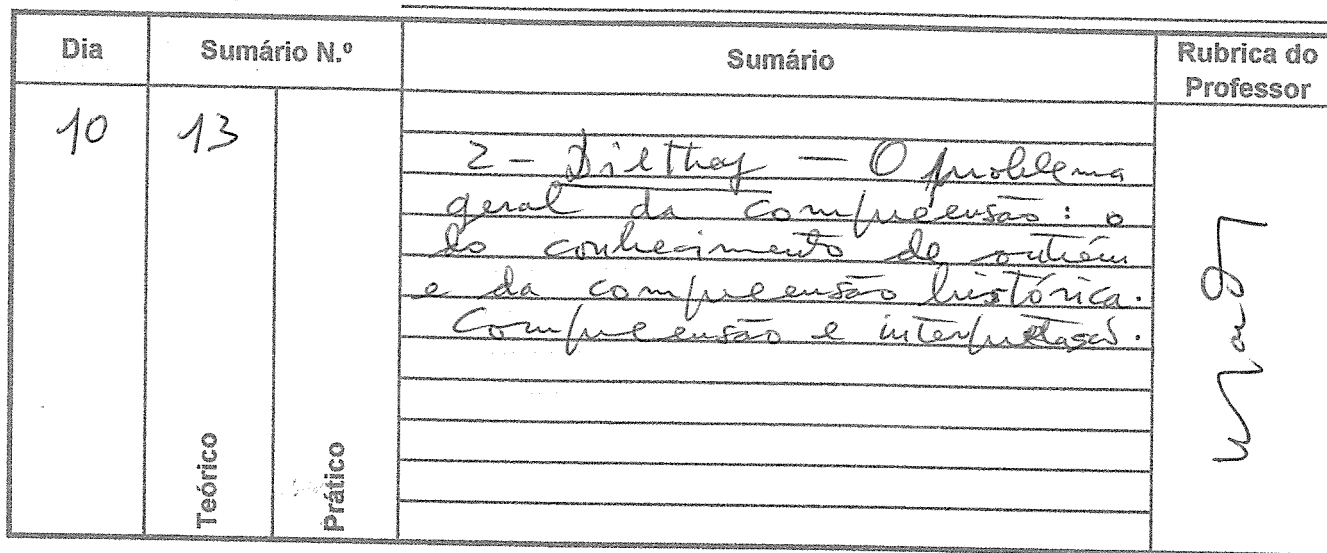 Dia
Sumário N.º
Sumário
Rubrica do
Professor
10
13
2 - Dilthey — O problema
geral da compreensão: o
do conhecimento de outrém
e da compreensão histórica.
Compreensão e interpretação.
Teórico
Prático